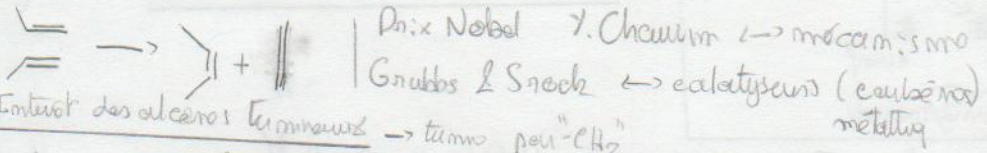 Prix Nobel Y. Chauvin <-> mécanisme
Grubbs & Shrock <-> catalyseurs (carbènes)
métalliq
Intérêt des alcènes terminaux -> termine par "-CH2"